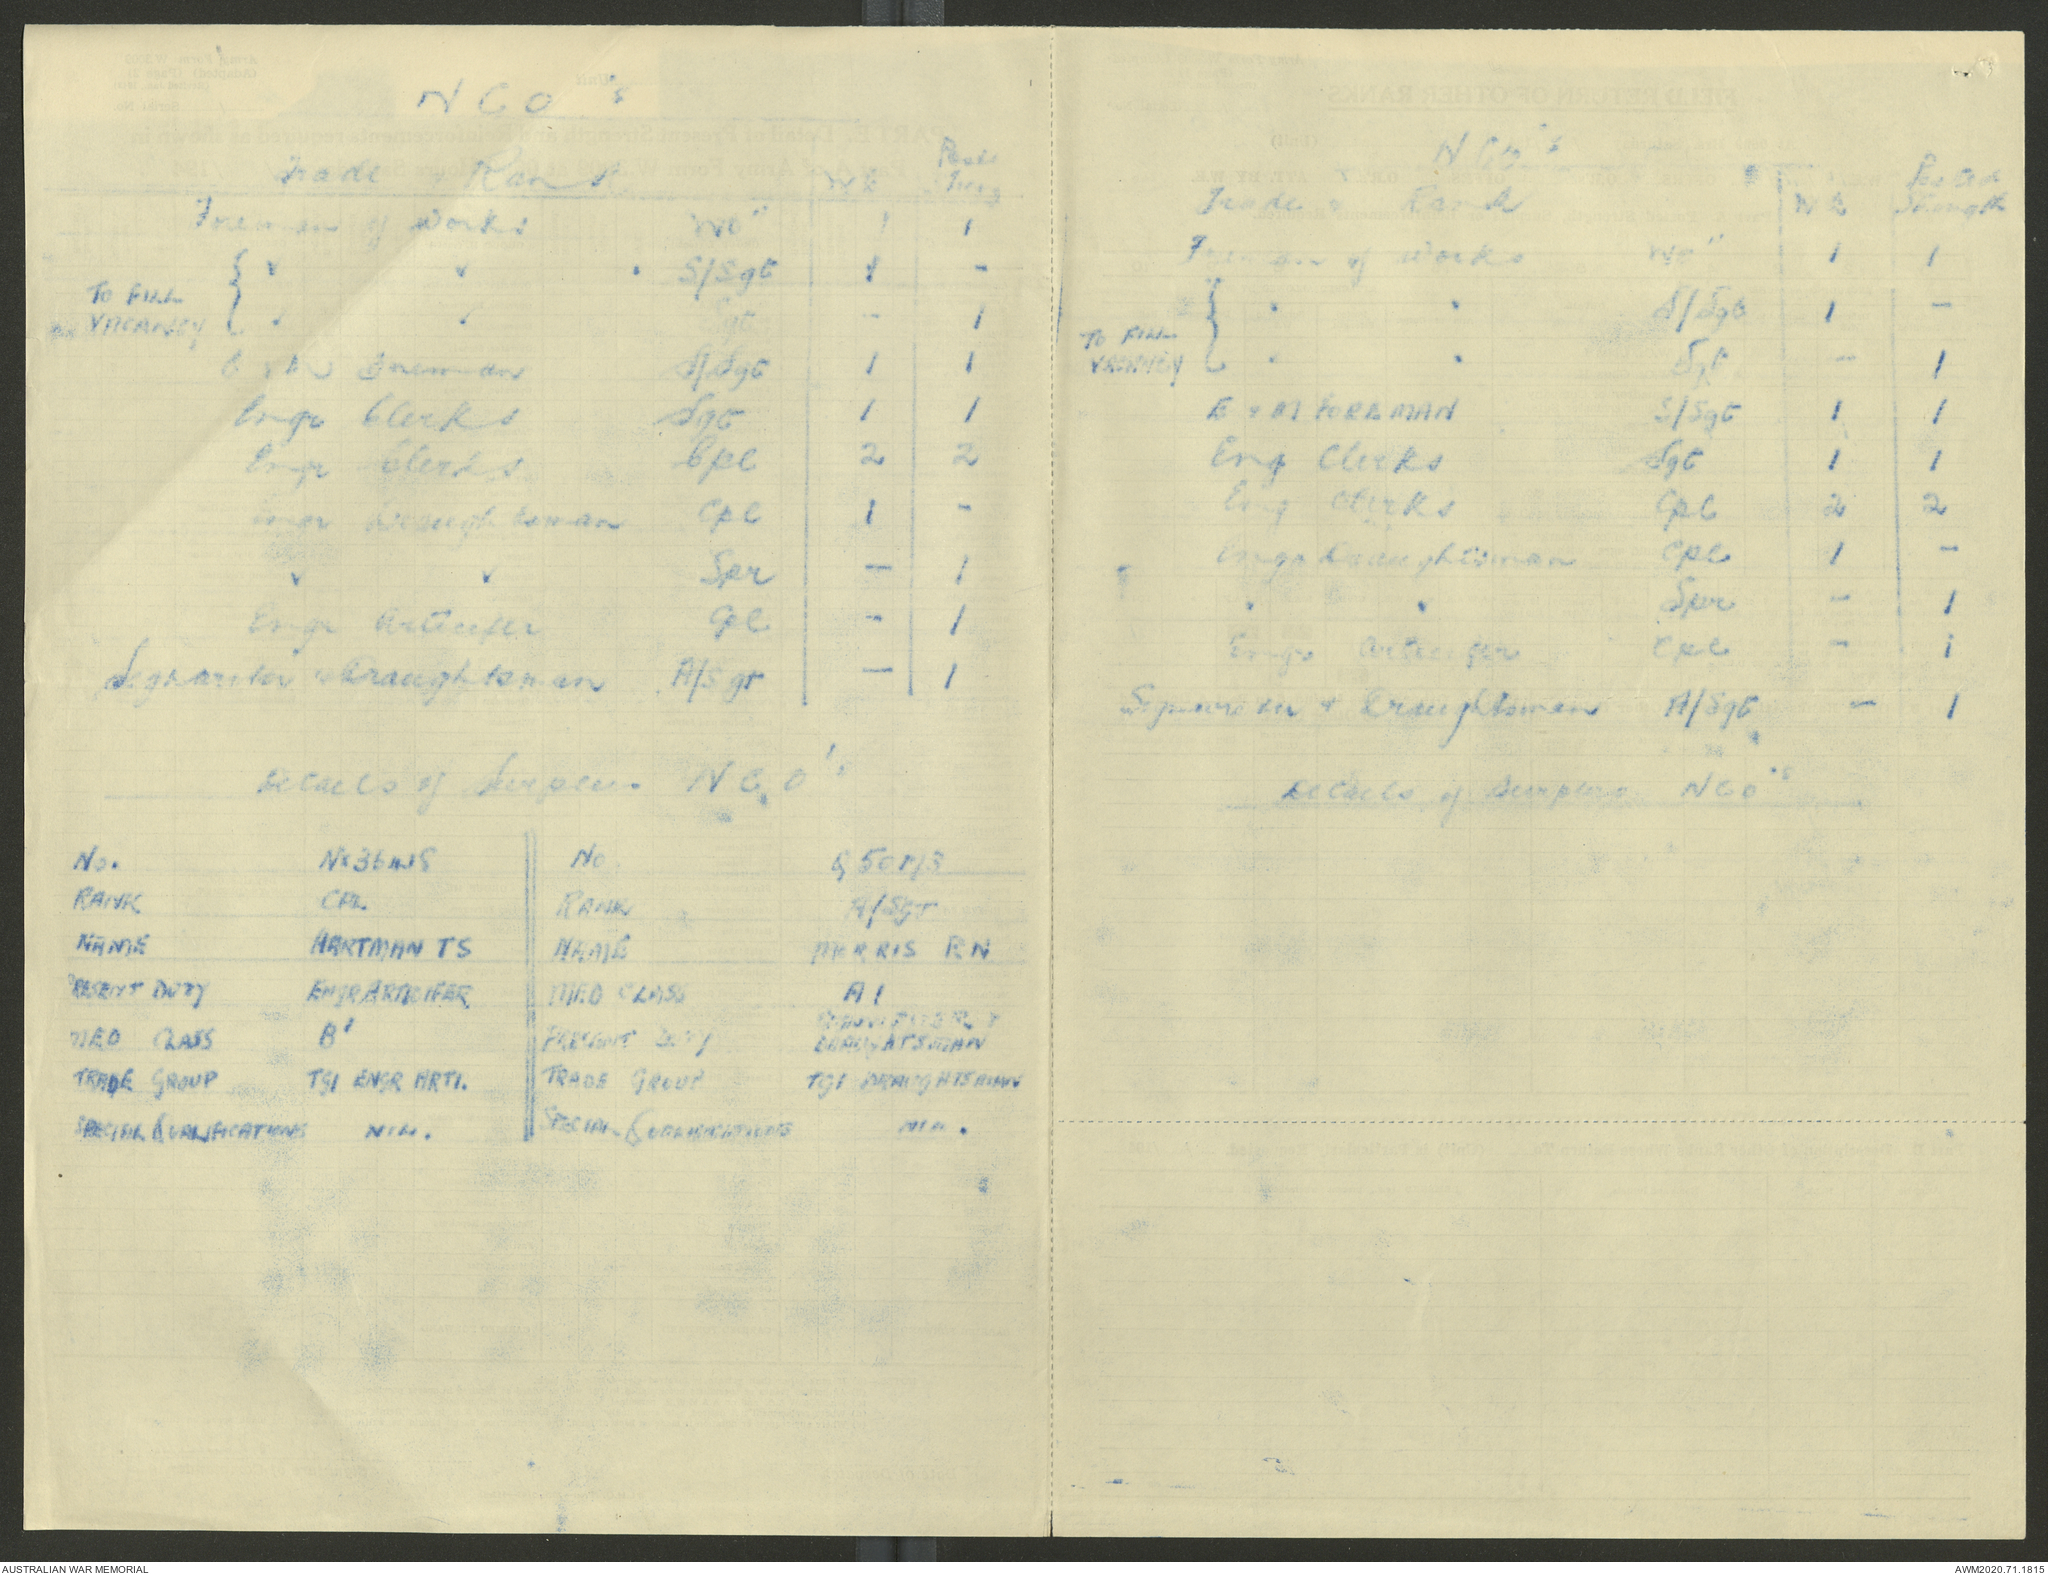 NCO's
Trade & Rank WE Posted Strength
Foreman of Works WO" 1 1
" " S/Sgt 1 -
TO FILL VACANCY
" " Sgt - 1
E & M Foreman S/Sgt 1 1
Engr Clerks Sgt 1 1
Engr Clerks Cpl 2 2
Engr Draughtsman Cpl 1 -
" " Spr - 1
Engr Artificer Cpl - 1
Signwriter & Draughtsman A/Sgt - 1
Details of Surplus NCO's
No. RANK CPL
NAME HARTMAN TS
PRESENT DUTY ENGR ARTIFICER
MED CLASS B1
TRADE GROUP TG1 ENGR ARTI.
SPECIAL QUALIFICATIONS NIL.
No.
RANK A/SGT
NAME MORRIS RN
MED CLASS A1
PRESENT DUTY SIGNWRITER & DRAUGHTSMAN
TRADE GROUP TG1 DRAUGHTSMAN
SPECIAL QUALIFICATIONS NIL.
NCO's
Trade & Rank WE Posted Strength
Foreman of Works WO" 1 1
" " S/Sgt 1 -
TO FILL VACANCY
" " Sgt - 1
E & M FOREMAN S/Sgt 1 1
Eng Clerks Sgt 1 1
Eng Clerks Cpl 2 2
Engr Draughtsman Cpl 1 -
" " Spr - 1
Engr Artificer Cpl - 1
Signwriter & Draughtsman A/Sgt - 1
Details of Surplus NCO's
AUSTRALIAN WAR MEMORIAL
AWM2020.71.1815